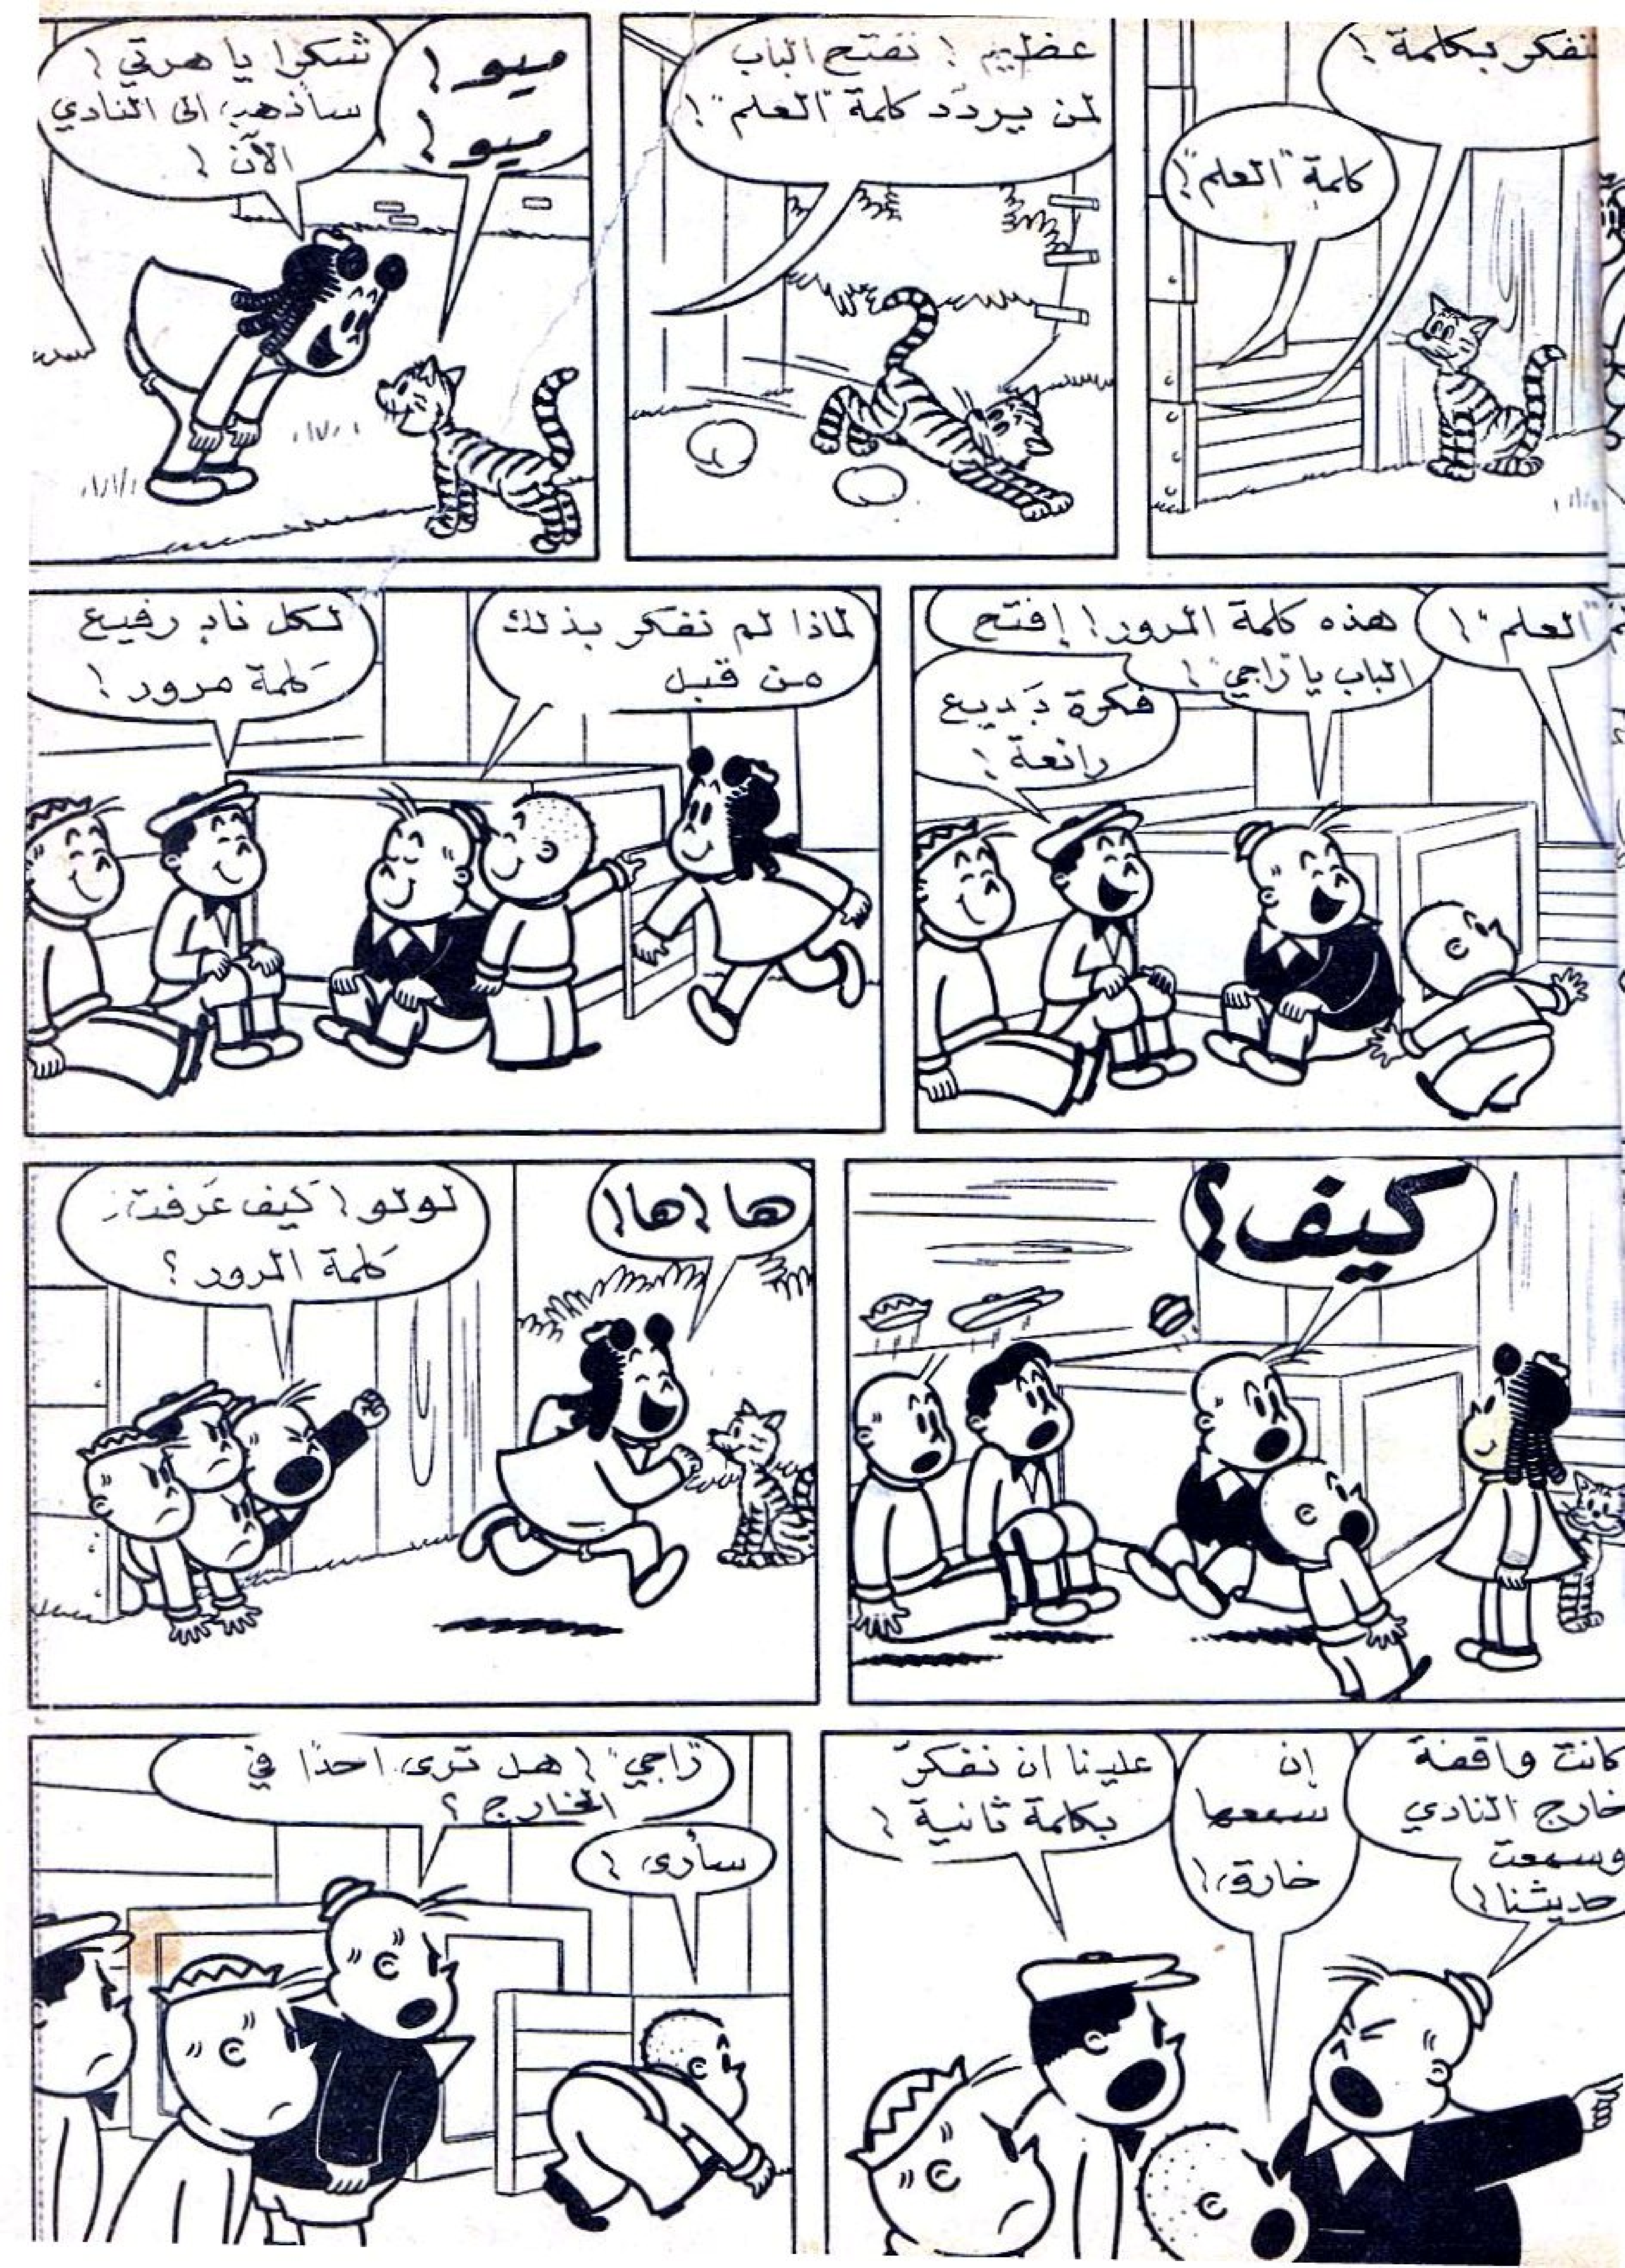 نفكر بكلمة !
كلمة "العلم" !
عظيم ! نفتح الباب
لمن يردّد كلمة "العلم" !
ميو !
ميو !
شكرا يا هرتي !
سأذهب الى النادي
الآن !
"العلم" !
هذه كلمة المرور ! إفتح
الباب يا زاجي !
فكرة بَديع
رائعة !
لماذا لم نفكر بذلك
من قبل
لكل نادٍ رفيع
كلمة مرور !
كيف ؟
ها ! ها !
لولو ! كيف عَرفت
كلمة المرور ؟
كانت واقفة
خارج النادي
وسمعت
حديثنا !
إن
سمعها
خارق !
علينا ان نفكّر
بكلمة ثانية !
زاجي ! هل ترى احدًا في
الخارج ؟
سأرى !